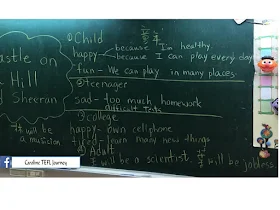 astle on
Hill
Sheeran
It will be
a musician
① Child
happy - because I'm healthy.
because I can play every day
fun - We can play in many places.
② teenager
sad - too much homework
difficult tests
③ college
happy - own cellphone
tired - learn many new things
④ Adult
I will be a scientist. will be jobless
Caroline TEFL Journey